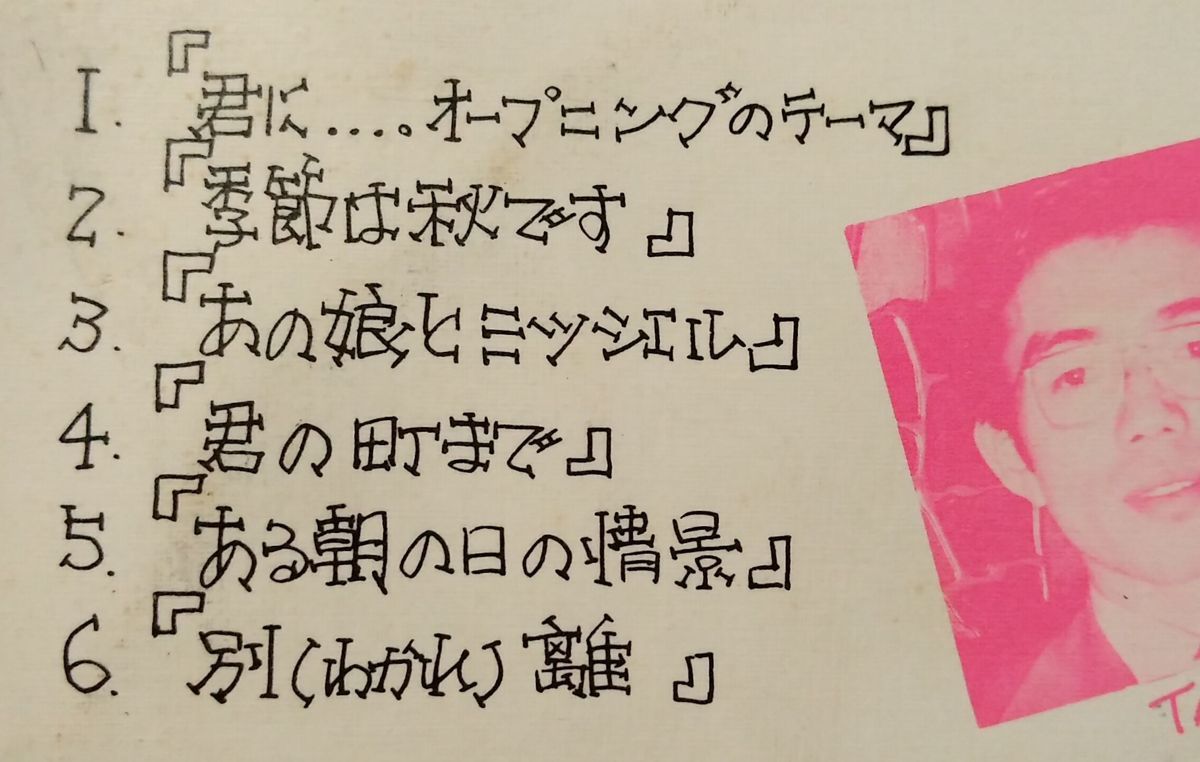 1. 『君に....。オープニングのテーマ』
2. 『季節は秋です』
3. 『あの娘とミッシェル』
4. 『君の町まで』
5. 『ある朝の日の情景』
6. 『別(わかれ)離』